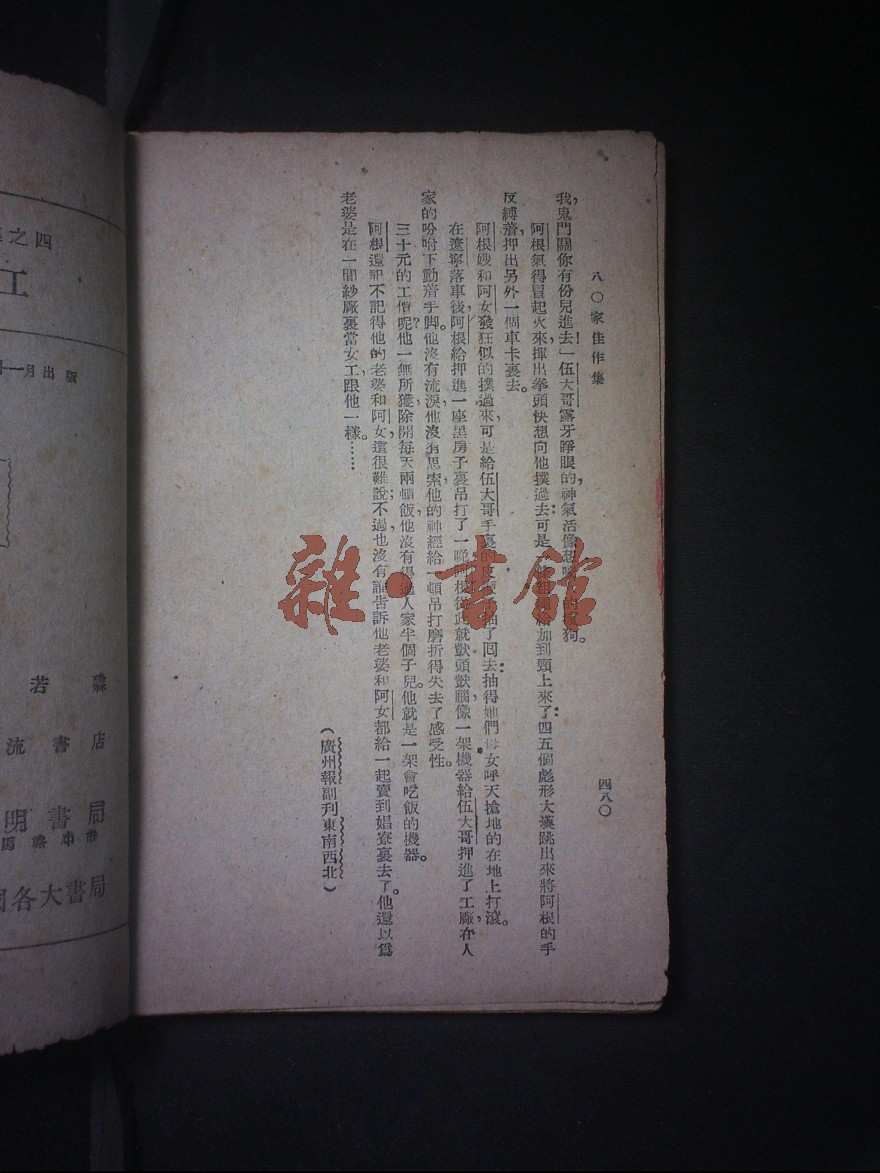 八〇家佳作集
四八〇
我,鬼門關你有份兒進去!」伍大哥露牙睜眼的,神氣活像想
狗。
阿根氣得冒起火來,揮出拳頭快想向他撲過去;可是
加到頸上來了;四五個彪形大漢跳出來將阿根的手
反縛着,押出另外一個車卡裏去。
阿根嫂和阿女發狂似的撲過來,可是給伍大哥手裏的皮
抽了回去;抽得她們母女呼天搶地的在地上打滾。
在遼寧落車後,阿根給押進一座黑房子裏吊打了一晚,阿根從此就獃頭獃腦,像一架機器給伍大哥押進了工廠,在人
家的吩咐下動着手脚。他沒有流淚,他沒有思索,他的神經給一頓吊打磨折得失去了感受性。
三十元的工價呢?他一無所獲,除開每天兩頓飯,他沒有得過人家半個子兒。他就是一架會吃飯的機器。
阿根還記不記得他的老婆和阿女,這很難說;不過也沒有誰告訴他老婆和阿女都給一起賣到娼寮裏去了。他還以爲
老婆是在一間紗廠裏當女工,跟他一樣。……
(廣州報副刊東南西北)
雜·書館
四之
江
十一月出版
若
流書店
明書局
各大書局